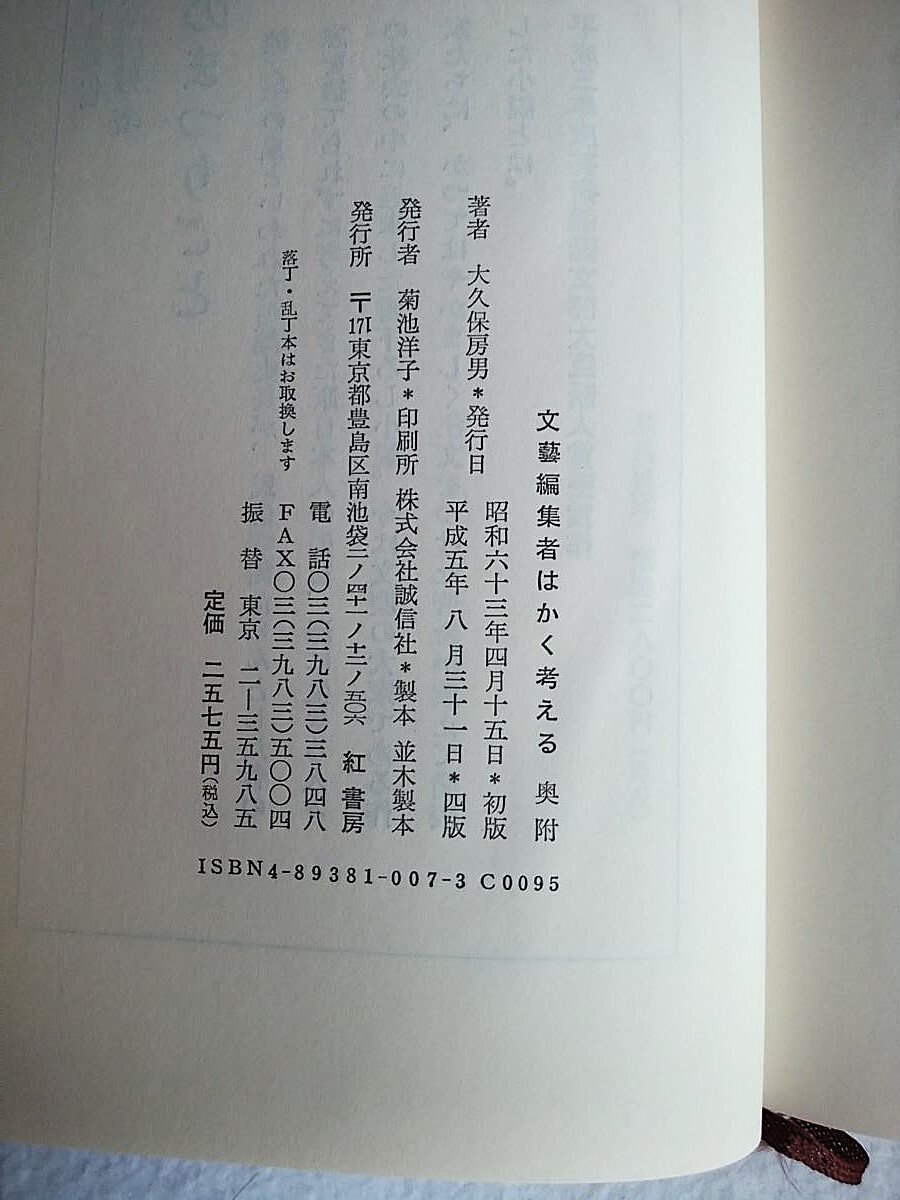 文藝編集者はかく考える 奥附
著者 大久保房男*発行日 昭和六十三年四月十五日*初版
平成五年 八 月三十一日*四版
発行者 菊池洋子*印刷所 株式会社誠信社*製本 並木製本
発行所 〒171東京都豊島区南池袋二ノ四一ノ十二ノ五〇六 紅 書房
電 話〇三(三九八三)三八四八
落丁・乱丁本はお取換します FAX〇三(三九八三)五〇〇四
振 替 東京 二―三五九八五
定価 二五七五円(税込)
ISBN4-89381-007-3 C0095